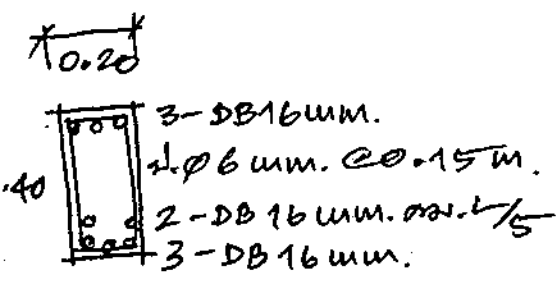 0.20
3-DB16mm.
ป.φ6 mm. @0.15 m.
.40
2-DB 16 mm. L/5
3-DB 16 mm.